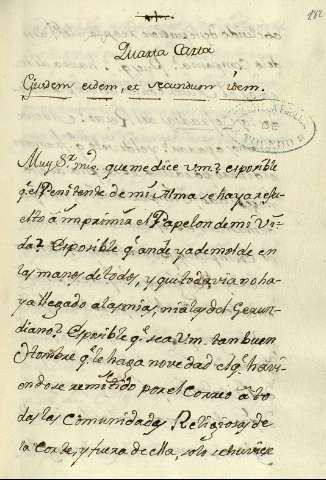 182
Quarta Carta
Ejusdem eidem, et secundum idem.
Muy Sr. mio, que me dice Vm? es posible
q.e el Penitente de mi Alma se haya resu-
elto â imprimir el Papelon de mi Vi-
da? Es posible q.e ande ya de molde en
las manos de todos, y que todavia no ha-
ya llegado a las mias, ni a las del Gerun-
diano? Es posible q.e sea Vm. tan buen
Hombre q.e le haga novedad el q.e havi-
endose remitido por el Correo â to-
das las Comunidades Religiosas de
la Corte, y fuera de ella, solo se huviese
TOLEDO